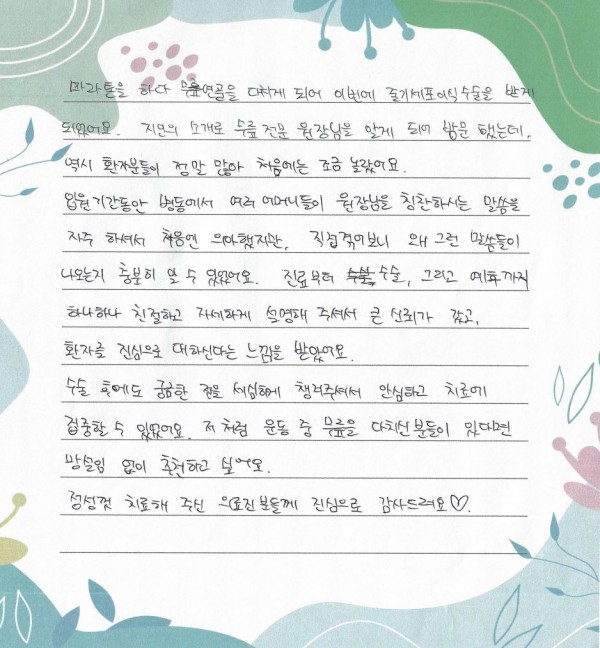 마라톤을 하다 무릎연골을 다치게 되어 이번에 줄기세포이식수술을 받게
되었어요. 지인의 소개로 무릎전문 원장님을 알게 되어 방문 했는데,
역시 환자분들이 정말 많아 처음에는 조금 놀랐어요.
입원기간동안 병동에서 여러 어머니들이 원장님을 칭찬하시는 말씀을
자주 하셔서 처음엔 의아했지만, 직접겪어보니 왜 그런 말씀들이
나오는지 충분히 알 수 있었어요. 진료부터 수술, 그리고 예후까지
하나하나 친절하고 자세하게 설명해 주셔서 큰 신뢰가 갔고,
환자를 진심으로 대하신다는 느낌을 받았어요.
수술 후에도 궁금한 점을 세심하게 챙겨주셔서 안심하고 치료에
집중할 수 있었어요. 저처럼 운동 중 무릎을 다치신분들이 있다면
망설임 없이 추천하고 싶어요.
정성껏 치료해 주신 의료진분들께 진심으로 감사드려요♡.